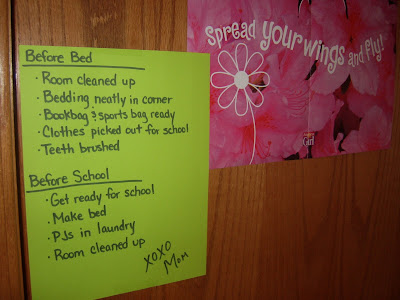 Before Bed
· Room cleaned up
· Bedding neatly in corner
· Bookbag & sports bag ready
· Clothes picked out for school
· Teeth brushed
Before School
· Get ready for school
· Make bed
· PJs in laundry
· Room cleaned up
XOXO
Mom
Spread your wings and fly!
Girl